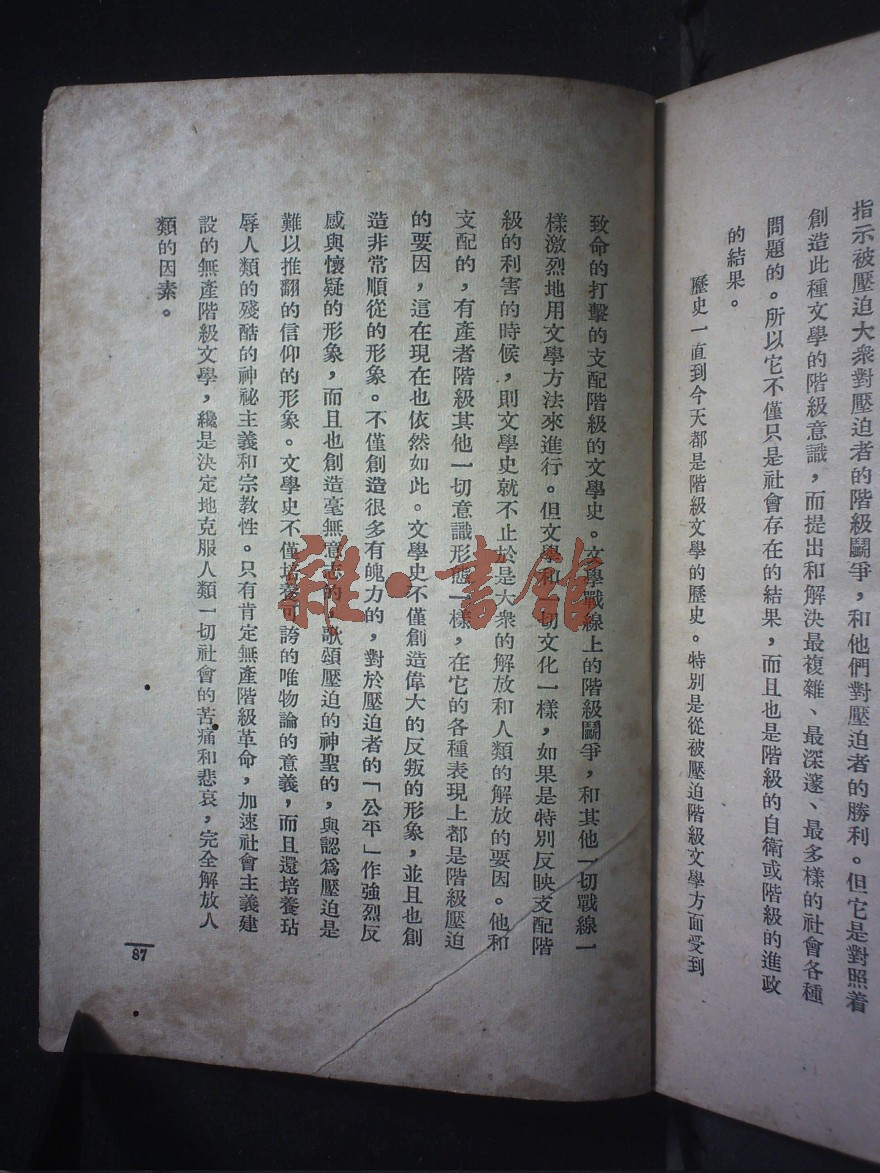 指示被壓迫大衆對壓迫者的階級鬬爭，和他們對壓迫者的勝利。但它是對照着
創造此種文學的階級意識，而提出和解決最複雜、最深邃、最多樣的社會各種
問題的。所以它不僅只是社會存在的結果，而且也是階級的自衛或階級的進攻
的結果。
歷史一直到今天都是階級文學的歷史。特別是從被壓迫階級文學方面受到
致命的打擊的支配階級的文學史。文學戰線上的階級鬬爭，和其他一切戰線一
樣激烈地用文學方法來進行。但文學和一切文化一樣，如果是特別反映支配階
級的利害的時候，則文學史就不止於是大衆的解放和人類的解放的要因。他和
支配的，有產者階級其他一切意識形態一樣，在它的各種表現上都是階級壓迫
的要因，這在現在也依然如此。文學史不僅創造偉大的反叛的形象，並且也創
造非常順從的形象。不僅創造很多有魄力的，對於壓迫者的「公平」作強烈反
感與懷疑的形象，而且也創造毫無意志的，歌頌壓迫的神聖的，與認爲壓迫是
難以推翻的信仰的形象。文學史不僅培養可誇的唯物論的意義，而且還培養玷
辱人類的殘酷的神祕主義和宗教性。只有肯定無產階級革命，加速社會主義建
設的無產階級文學，纔是決定地克服人類一切社會的苦痛和悲哀，完全解放人
類的因素。
87
雜·書館